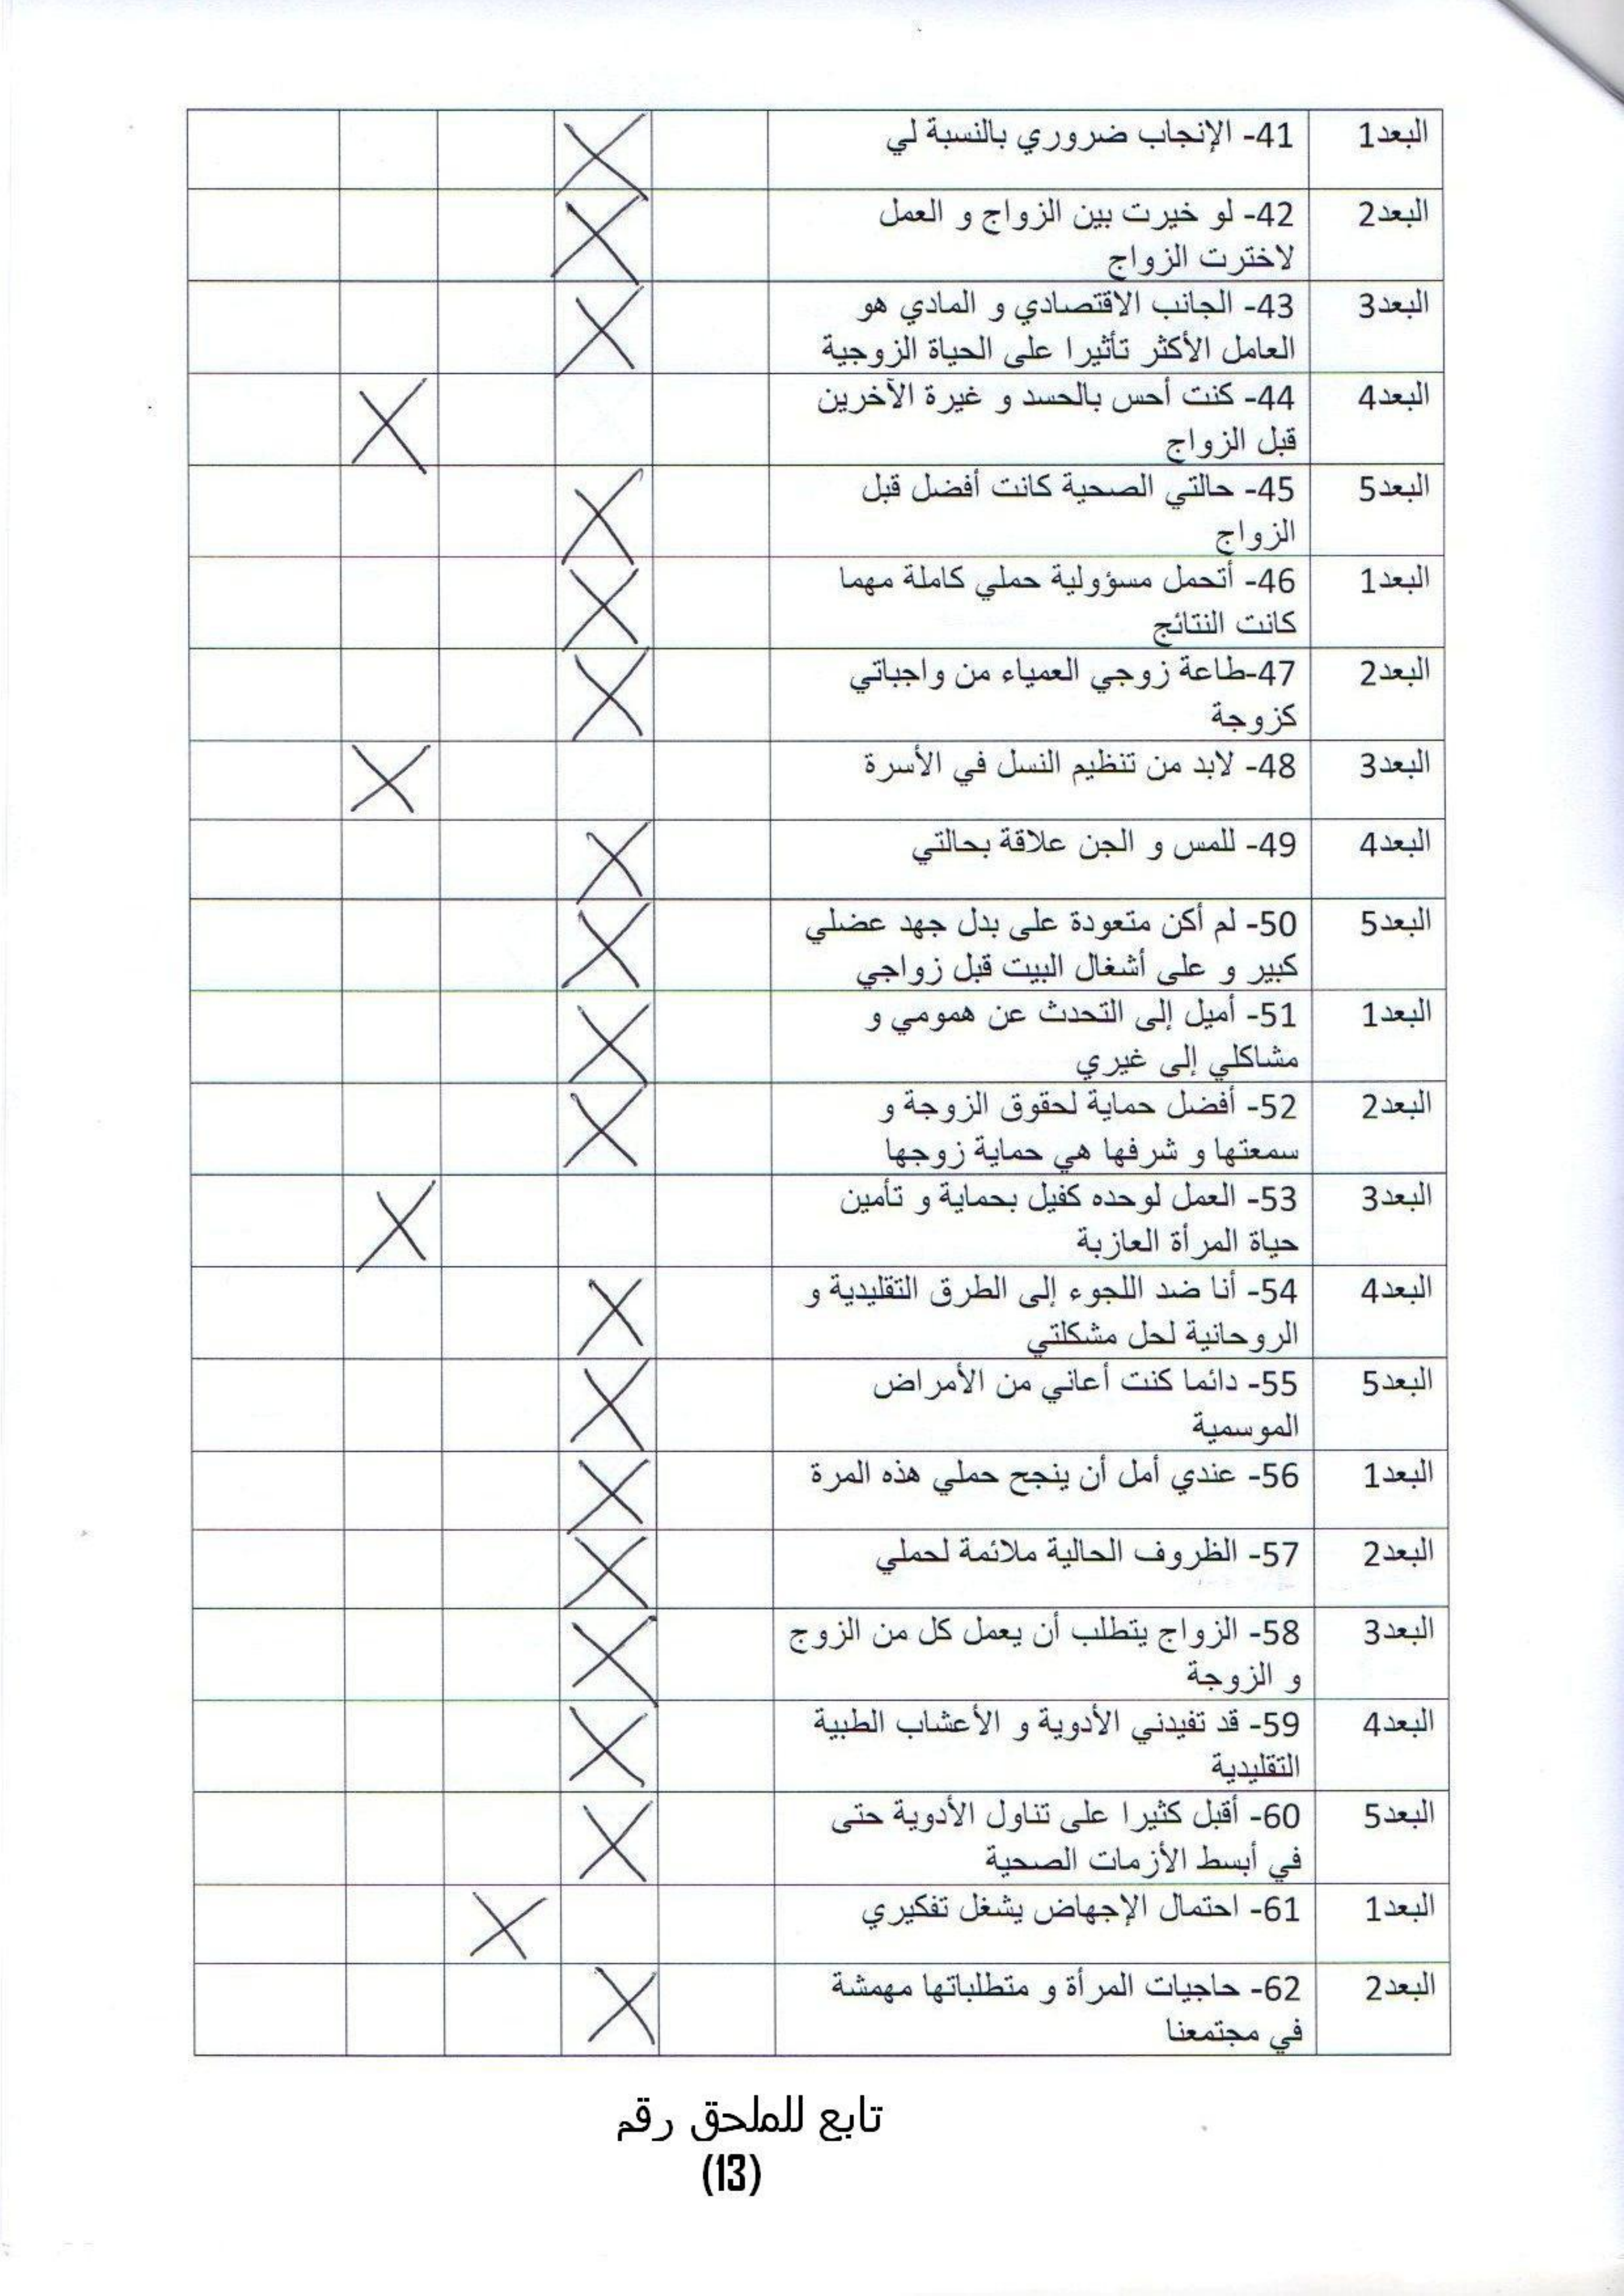 البعد1
41- الإنجاب ضروري بالنسبة لي
X
البعد2
42- لو خيرت بين الزواج و العمل
لاخترت الزواج
X
البعد3
43- الجانب الاقتصادي و المادي هو
العامل الأكثر تأثيرا على الحياة الزوجية
X
البعد4
44- كنت أحس بالحسد و غيرة الآخرين
قبل الزواج
X
البعد5
45- حالتي الصحية كانت أفضل قبل
الزواج
X
البعد1
46- أتحمل مسؤولية حملي كاملة مهما
كانت النتائج
X
البعد2
47-طاعة زوجي العمياء من واجباتي
كزوجة
X
البعد3
48- لابد من تنظيم النسل في الأسرة
X
البعد4
49- للمس و الجن علاقة بحالتي
X
البعد5
50- لم أكن متعودة على بدل جهد عضلي
كبير و على أشغال البيت قبل زواجي
X
البعد1
51- أميل إلى التحدث عن همومي و
مشاكلي إلى غيري
X
البعد2
52- أفضل حماية لحقوق الزوجة و
سمعتها و شرفها هي حماية زوجها
X
البعد3
53- العمل لوحده كفيل بحماية و تأمين
حياة المرأة العازبة
X
البعد4
54- أنا ضد اللجوء إلى الطرق التقليدية و
الروحانية لحل مشكلتي
X
البعد5
55- دائما كنت أعاني من الأمراض
الموسمية
X
البعد1
56- عندي أمل أن ينجح حملي هذه المرة
X
البعد2
57- الظروف الحالية ملائمة لحملي
X
البعد3
58- الزواج يتطلب أن يعمل كل من الزوج
و الزوجة
X
البعد4
59- قد تفيدني الأدوية و الأعشاب الطبية
التقليدية
X
البعد5
60- أقبل كثيرا على تناول الأدوية حتى
في أبسط الأزمات الصحية
X
البعد1
61- احتمال الإجهاض يشغل تفكيري
X
البعد2
62- حاجيات المرأة و متطلباتها مهمشة
في مجتمعنا
X
تابع للملحق رقم
(13)